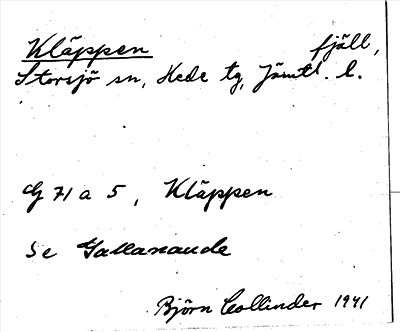 Kläppen fjäll,
Storsjö sn, Hede tg, Jämtl. l.
G 71 a 5, Kläppen
Se Gallanaude
Björn Collinder 1941